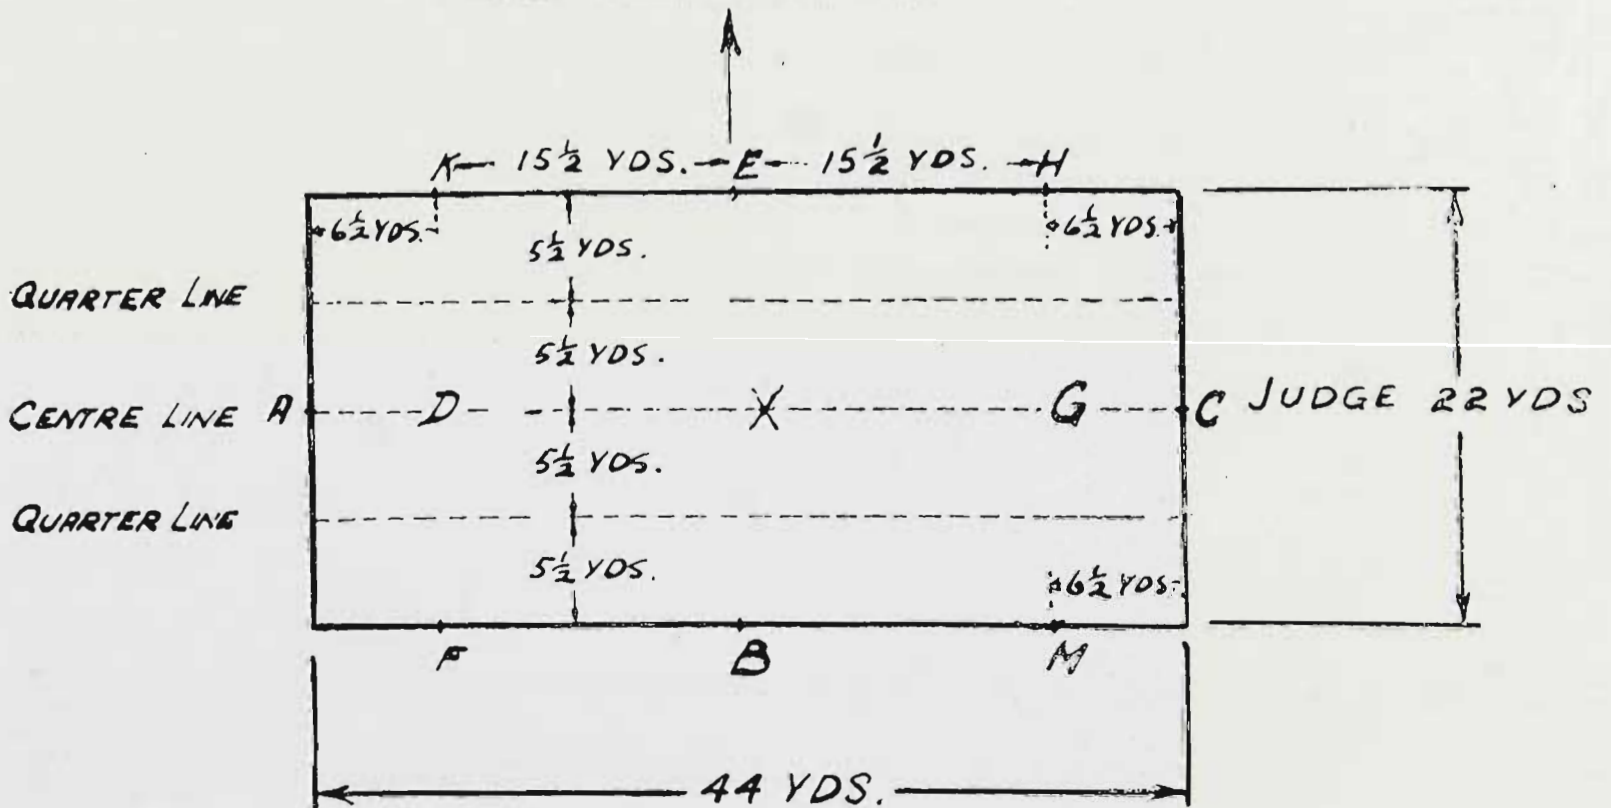 K 15½ YDS. E 15½ YDS. H
6½ YDS. 6½ YDS.
5½ YDS.
QUARTER LINE
5½ YDS.
CENTRE LINE A D X G C JUDGE 22 YDS
5½ YDS.
QUARTER LINE
5½ YDS. 6½ YDS
F B M
44 YDS.